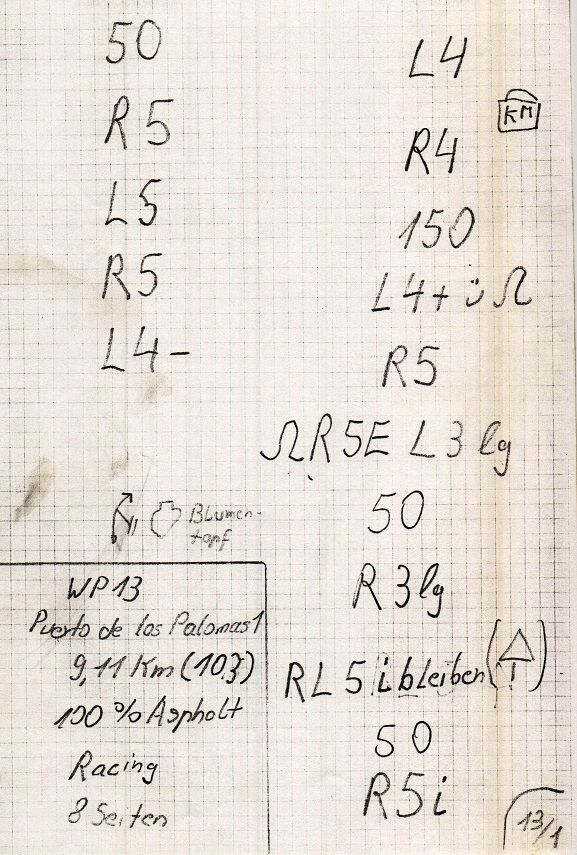 50
R5
L5
R5
L4-
Blumen-
topf
WP 13
Puerto de los Palomas 1
9,11 Km (103)
100 % Asphalt
Racing
8 Seiten
L4
KM
R4
150
L4+ ü Ω
R5
Ω R5E L3 lg
50
R3lg
RL 5 i bleiben (
)
50
R5i
13/1